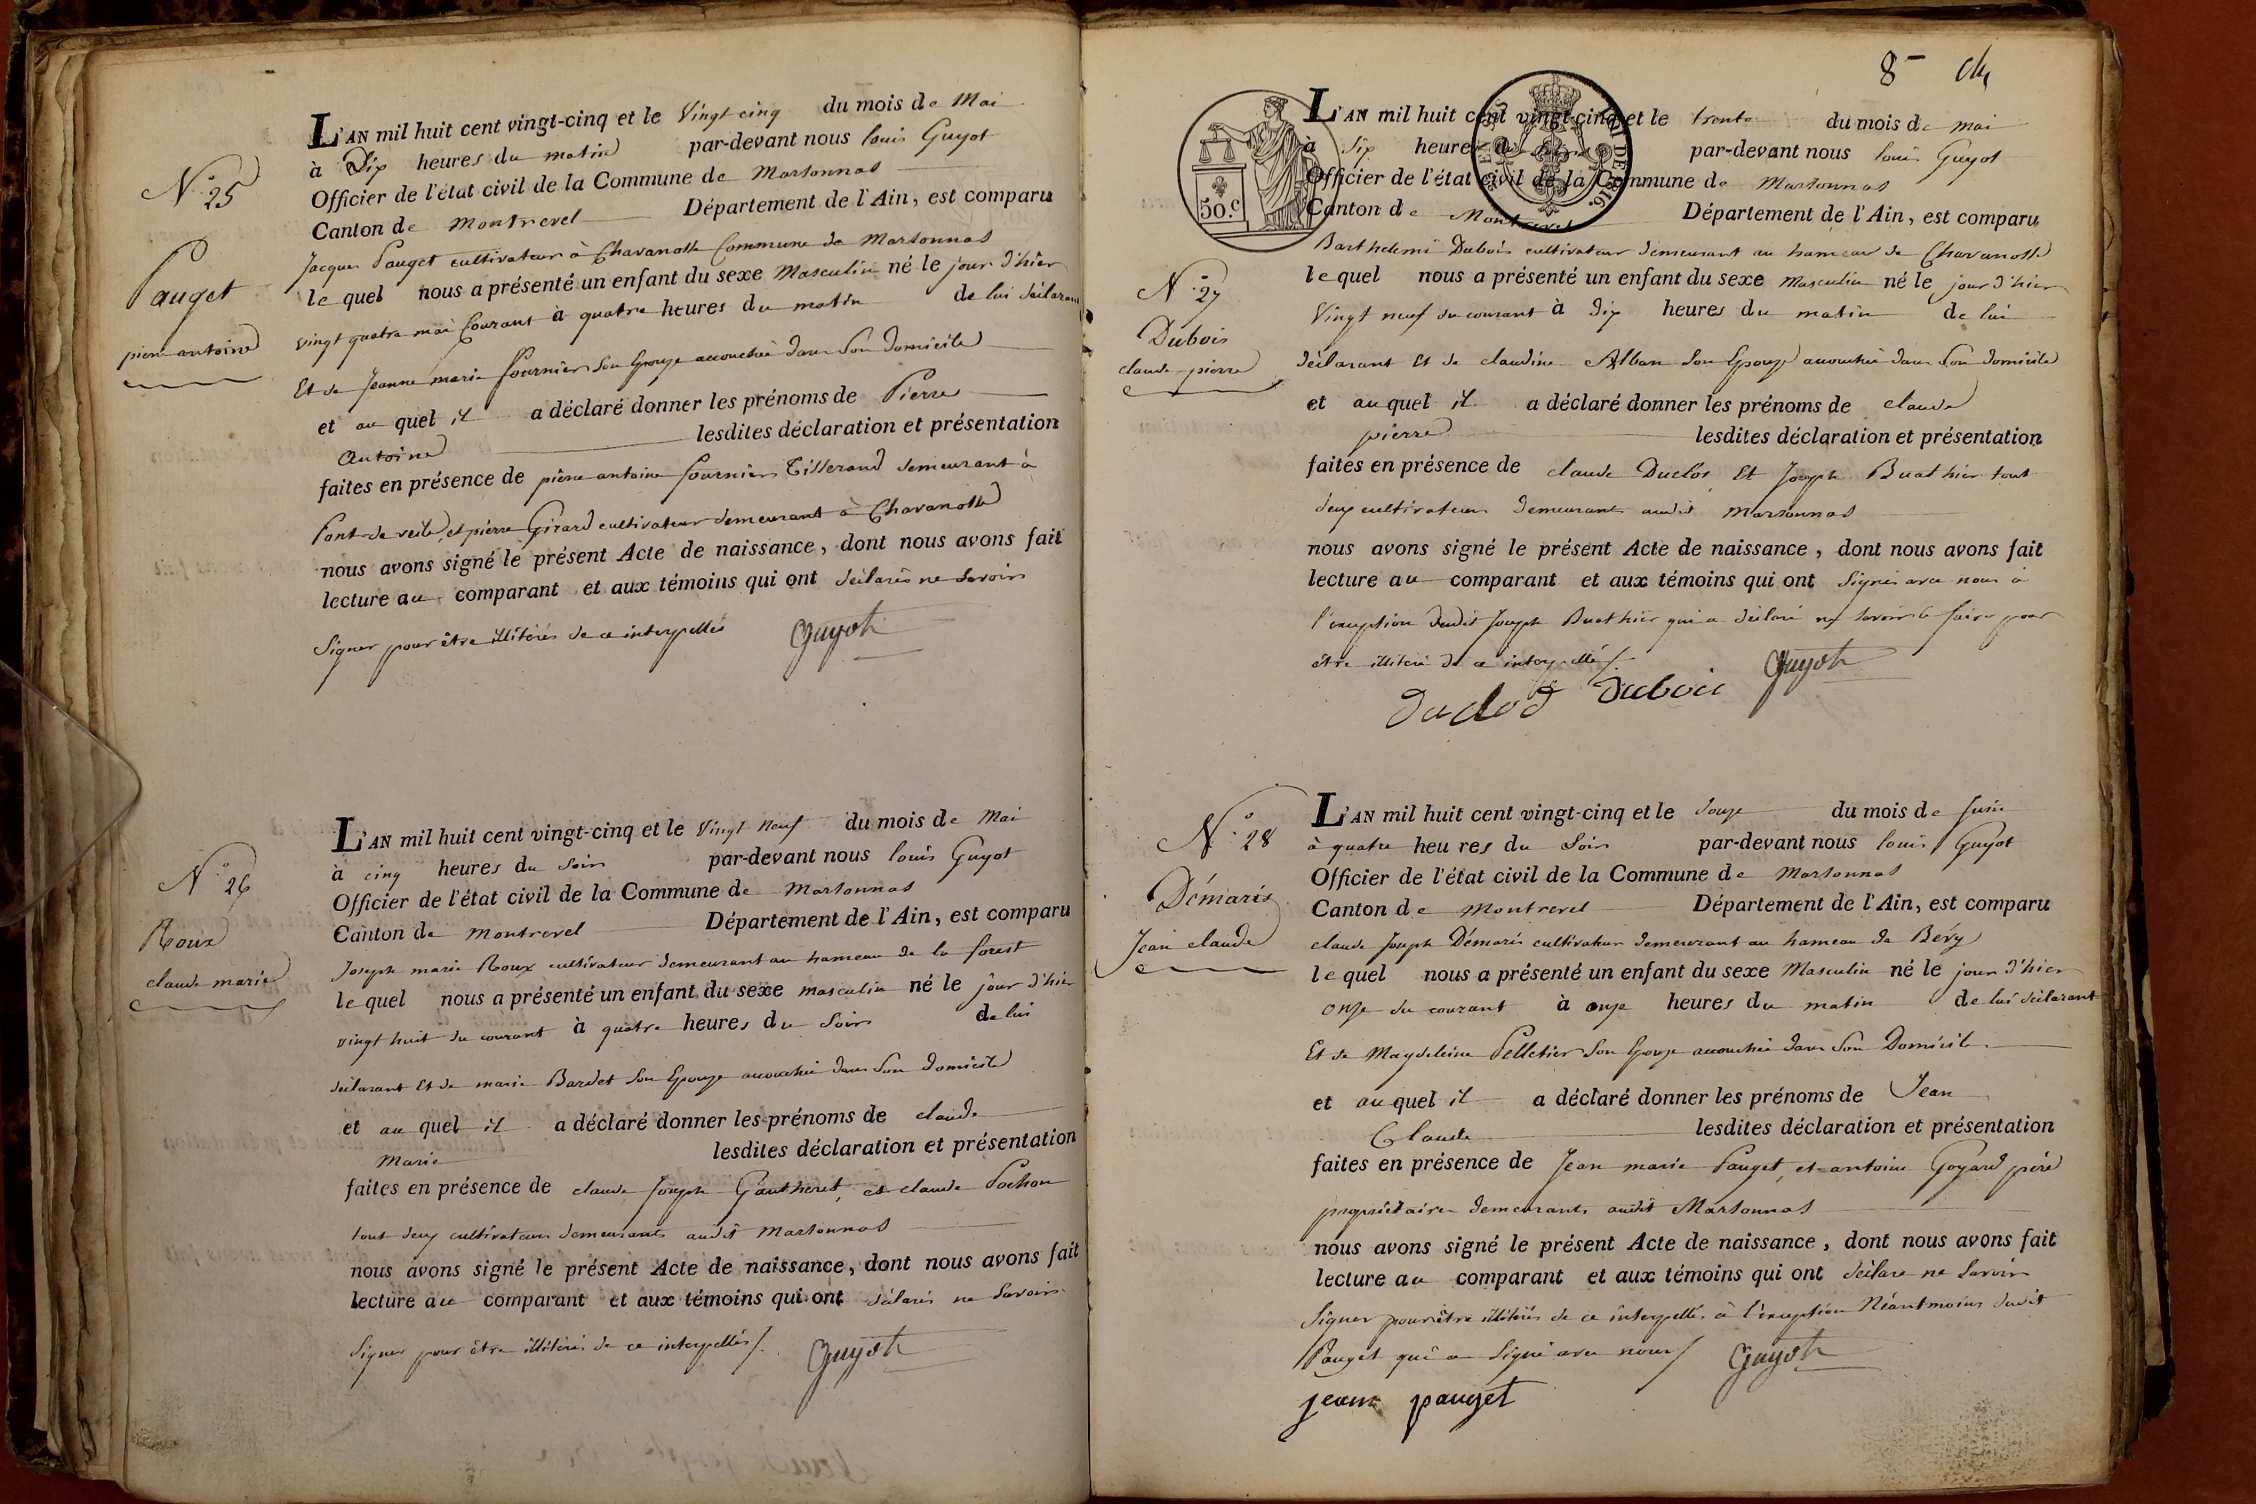 N° 25
Pauget
pierre antoine
L'AN mil huit cent vingt-cinq et le Vingt cinq du mois de Mai
à Dix heures du matin par-devant nous louis Guyot
Officier de l'état civil de la Commune de Marsonnas
Canton de Montrevel Département de l'Ain, est comparu
Jacques Pauget cultivateur à Chavanosse Commune de Marsonnas
le quel nous a présenté un enfant du sexe Masculin né le jour d'hier
vingt quatre mai Courant à quatre heures du matin de lui déclarant
Et de Jeanne marie fournier Son Epouse accouchée dans Son domicile
et au quel il a déclaré donner les prénoms de Pierre
Antoine lesdites déclaration et présentation
faites en présence de pierre antoine fournier Tisserand demeurant à
Pont-de-veile, et pierre Girard cultivateur demeurant à Chavanosse
nous avons signé le présent Acte de naissance, dont nous avons fait
lecture au comparant et aux témoins qui ont déclarés ne Savoir
Signer pour être illitérés de ce interpellés Guyot
N° 26
Roux
claude marie
L'AN mil huit cent vingt-cinq et le Vingt Neuf du mois de Mai
à cinq heures du Soir par-devant nous louis Guyot
Officier de l'état civil de la Commune de Marsonnas
Canton de Montrevel Département de l'Ain, est comparu
Joseph marie Roux cultivateur demeurant au hameau de la forest
le quel nous a présenté un enfant du sexe masculin né le jour d'hier
vingt huit du courant à quatre heures du Soir de lui
déclarant Et de marie Bardet Son Epouse accouchée dans Son domicile
et au quel il a déclaré donner les prénoms de claude
Marie lesdites déclaration et présentation
faites en présence de claude Joseph Gautheret, et claude Pochon
tout deux cultivateurs demeurants audit Marsonnas
nous avons signé le présent Acte de naissance, dont nous avons fait
lecture au comparant et aux témoins qui ont déclarés ne Savoir
Signer pour être illitérés de ce interpellés/. Guyot
8
50.c
L'AN mil huit cent vingt-cinq et le trente du mois de mai
à Six heures du par-devant nous louis Guyot
Officier de l'état civil de la Commune de Marsonnas
Canton de Montrevel Département de l'Ain, est comparu
N° 27
Dubois
claude pierre
Barthelemi Dubois cultivateur demeurant au hameau de Chavanosse
le quel nous a présenté un enfant du sexe Masculin né le jour d'hier
Vingt neuf du courant à dix heures du matin de lui
déclarant Et de claudine Alban Son Epouse accouchée dans Son domicile
et au quel il a déclaré donner les prénoms de claude
pierre lesdites déclaration et présentation
faites en présence de claude Duclos Et Joseph Buathier tout
deux cultivateurs demeurants audit Marsonnas
nous avons signé le présent Acte de naissance, dont nous avons fait
lecture au comparant et aux témoins qui ont Signés avec nous à
l'exception dudit Joseph Buathier qui a déclaré ne Savoir le faire pour
être illitéré de ce interpellé/. Guyot
duclos dubois
N° 28
Démaris
Jean claude
L'AN mil huit cent vingt-cinq et le douze du mois de Juin
à quatre heures du Soir par-devant nous louis Guyot
Officier de l'état civil de la Commune de Marsonnas
Canton de Montrevel Département de l'Ain, est comparu
claude Joseph Démaris cultivateur demeurant au hameau de Bévy
le quel nous a présenté un enfant du sexe Masculin né le jour d'hier
onze du courant à onze heures du matin de lui déclarant
Et de Magdeleine Pelletier Son Epouse accouchée dans Son Domicile
et au quel il a déclaré donner les prénoms de Jean
Claude lesdites déclaration et présentation
faites en présence de Jean marie Pauget, et antoine Goyard père
propriétaires demeurants audit Marsonnas
nous avons signé le présent Acte de naissance, dont nous avons fait
lecture au comparant et aux témoins qui ont déclare ne Savoir
Signer pour être illitérés de ce interpellés à l'exception Néantmoins dudit
Pauget qui a Signé avec nous/ Guyot
jean pauget